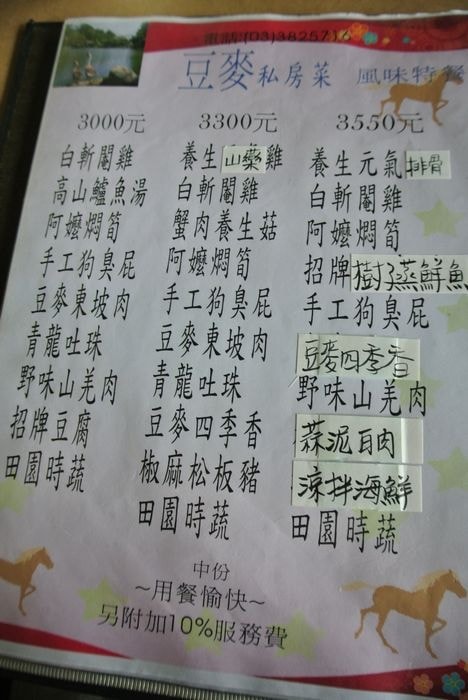 電話:(03)3825716
豆麥私房菜 風味特餐
3000元
白斬閹雞
高山鱸魚湯
阿嬤燜筍
手工狗臭屁
豆麥東坡肉
青龍吐珠
野味山羌肉
招牌豆腐
田園時蔬
3300元
養生山藥雞
白斬閹雞
蟹肉養生菇
阿嬤燜筍
手工狗臭屁
豆麥東坡肉
青龍吐珠
豆麥四季香
椒麻松板豬
田園時蔬
3550元
養生元氣排骨
白斬閹雞
阿嬤燜筍
招牌樹子蒸鮮魚
手工狗臭屁
豆麥四季香
野味山羌肉
蒜泥白肉
涼拌海鮮
田園時蔬
中份
~用餐愉快~
另附加10%服務費